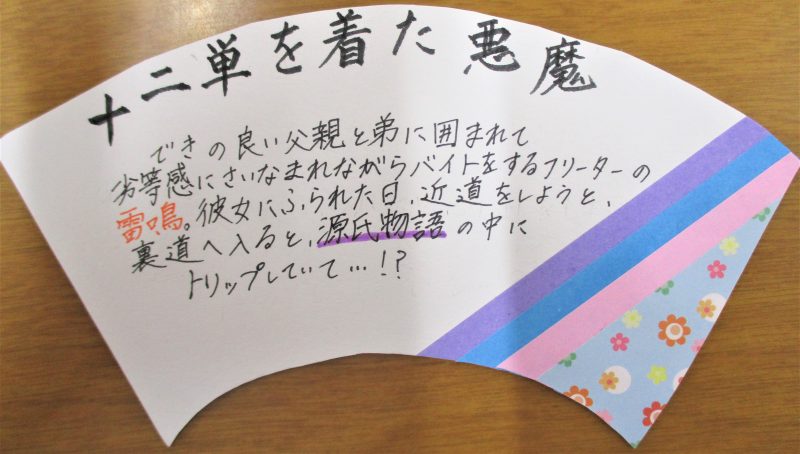 十二単を着た悪魔
できの良い父親と弟に囲まれて
劣等感にさいなまれながらバイトをするフリーターの
雷鳴。彼女にふられた日、近道をしようと、
裏道へ入ると、源氏物語の中に
トリップしていて…!?